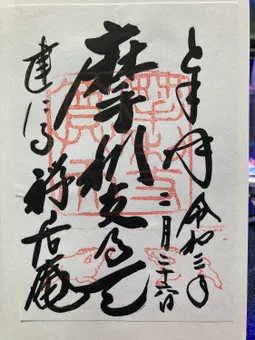 奉拝 令和三年
二月二十六日
摩利支尊天
建仁寺 禅居庵